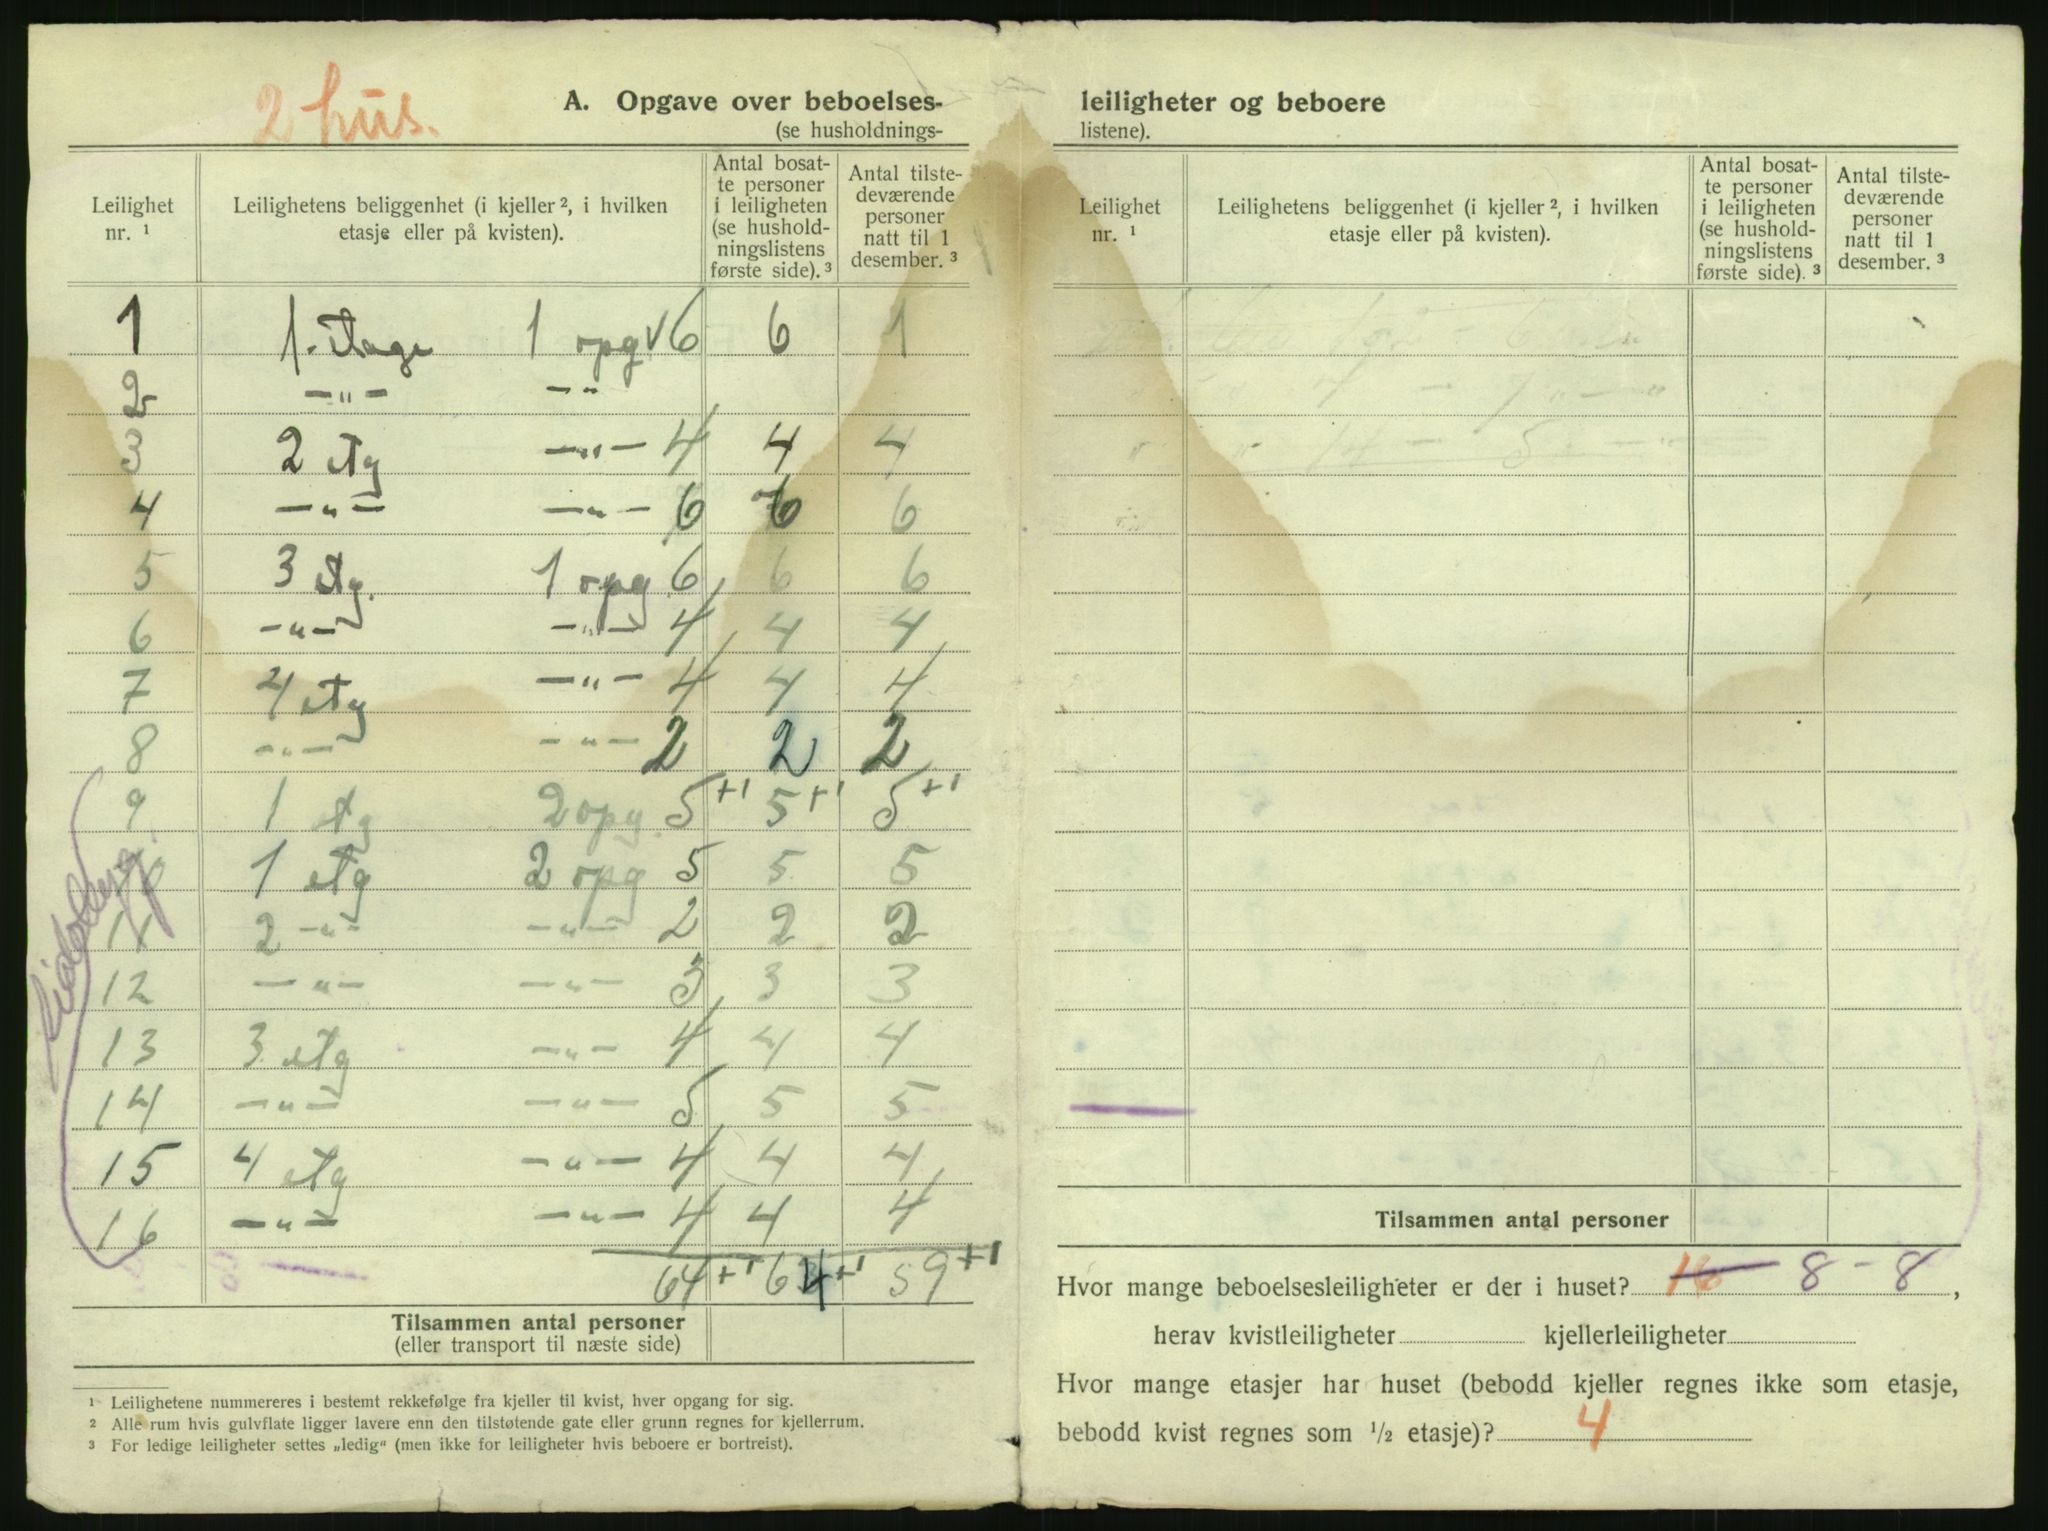 2 hus.
A. Opgave over beboelses-
(se husholdnings-
Leilighet nr. ¹
Leilighetens beliggenhet (i kjeller ², i hvilken etasje eller på kvisten).
Antal bosat-
te personer
i leiligheten
(se hushold-
ningslistens
første side). ³
Antal tilste-
deværende
personer
natt til 1
desember. ³
1 1. Etage 1 opg √ 6 6 1
2 –„– –„
3 2 etg –„– 4 4 4
4 –„– –„– 6 6 6
5 3 etg. 1 opg 6 6 6
6 –„– –„– 4 4 4
7 4 etg –„– 4 4 4
8 –„– –„– 2 2 2
9 1 etg 2 opg. 5+1 5+1 5+1
10 1 etg 2 opg 5 5 5
11 2 –„– –„– 2 2 2
12 –„– –„– 3 3 3
13 3 etg –„– 4 4 4
14 –„– –„– 5 5 5
15 4 etg –„– 4 4 4
16 –„– –„– 4 4 4
64+1 64+1 59+1
Tilsammen antal personer
(eller transport til næste side)
¹ Leilighetene nummereres i bestemt rekkefølge fra kjeller til kvist, hver opgang for sig.
² Alle rum hvis gulvflate ligger lavere enn den tilstøtende gate eller grunn regnes for kjellerrum.
³ For ledige leiligheter settes „ledig“ (men ikke for leiligheter hvis beboere er bortreist).
leiligheter og beboere
listene).
Leilighet nr. ¹
Leilighetens beliggenhet (i kjeller ², i hvilken etasje eller på kvisten).
Antal bosat-
te personer
i leiligheten
(se hushold-
ningslistens
første side). ³
Antal tilste-
deværende
personer
natt til 1
desember. ³
Tilsammen antal personer
Hvor mange beboelsesleiligheter er der i huset? 16 8 – 8,
herav kvistleiligheter kjellerleiligheter
Hvor mange etasjer har huset (bebodd kjeller regnes ikke som etasje,
bebodd kvist regnes som ½ etasje)? 4